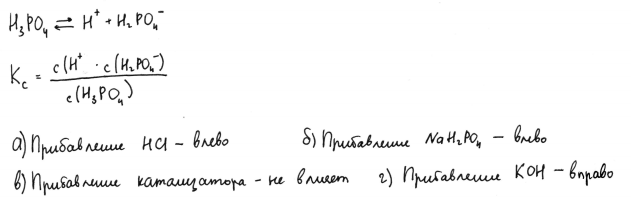 H₃PO₄ ⇄ H⁺ + H₂PO₄⁻
K_c = c(H⁺ · c(H₂PO₄⁻) / c(H₃PO₄)
а) Прибавление HCl – влево б) Прибавление NaH₂PO₄ – влево
в) Прибавление катализатора - не влияет г) Прибавление KOH – вправо